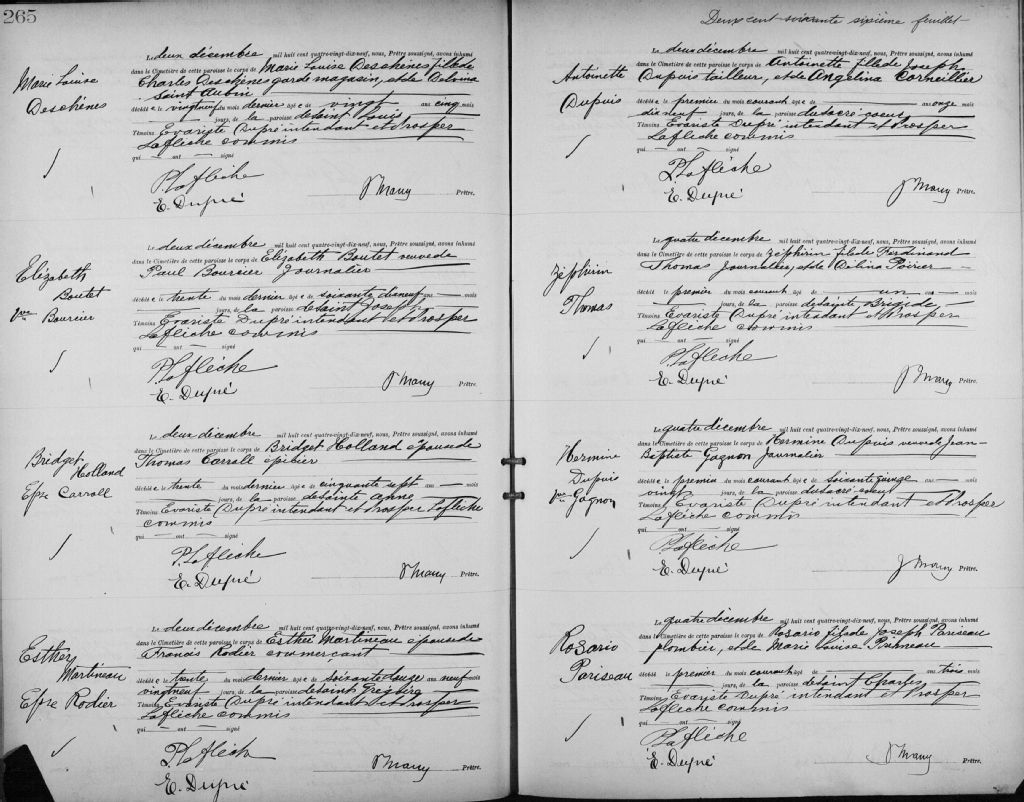 265
Marie Louise
Deschênes
Le deux décembre mil huit cent quatre-vingt-dix-neuf, nous, Prêtre soussigné, avons inhumé
dans le Cimetière de cette paroisse le corps de Marie Louise Deschênes fille de
Charles Deschênes garde magasin, et de Delvina
Saint Aubin
décédé e le vingt neuf du mois dernier âgé e de vingt ans cinq mois
jours, de la paroisse de Saint Louis
Témoins Evariste Dupré intendant et Prosper
Lafléche commis
qui ont signé
P. Lafléche
E. Dupré
Prêtre.
Elizabeth
Boutet
Vve Bourcier
Le deux décembre mil huit cent quatre-vingt-dix-neuf, nous, Prêtre soussigné, avons inhumé
dans le Cimetière de cette paroisse le corps de Elizabeth Boutet veuve de
Paul Bourcier Journalier
décédé e le trente du mois dernier âgé e de soixante dix neuf ans mois
jours, de la paroisse de Saint Joseph
Témoins Evariste Dupré intendant et Prosper
Lafléche commis
qui ont signé
P. Lafléche
E. Dupré
Prêtre.
Bridget
Holland
Epse Carroll
Le deux décembre mil huit cent quatre-vingt-dix-neuf, nous, Prêtre soussigné, avons inhumé
dans le Cimetière de cette paroisse le corps de Bridget Holland épouse de
Thomas Carroll épicier
décédé e le trente du mois dernier âgé e de cinquante sept ans mois
jours, de la paroisse de Sainte Anne
Témoins Evariste Dupré intendant et Prosper Lafléche
commis
qui ont signé
P. Lafléche
E. Dupré
Prêtre.
Esther
Martineau
Epse Rodier
Le deux décembre mil huit cent quatre-vingt-dix-neuf, nous, Prêtre soussigné, avons inhumé
dans le Cimetière de cette paroisse le corps de Esther Martineau épouse de
Francis Rodier commerçant
décédé e le trente du mois dernier âgé e de soixante ans neuf mois
vingt neuf jours, de la paroisse de Saint
Témoins Evariste Dupré intendant et Prosper
Lafléche commis
qui ont signé
P. Lafléche
E. Dupré
Prêtre.
Deux cent soixante sixième feuillet
Antoinette
Dupuis
Le deux décembre mil huit cent quatre-vingt-dix-neuf, nous, Prêtre soussigné, avons inhumé
dans le Cimetière de cette paroisse le corps de Antoinette fille de Joseph
Dupuis tailleur, et de Angelina Corneillier
décédé e le premier du mois courant âgé e de ans onze mois
dix neuf jours, de la paroisse du Sacré Coeur
Témoins Evariste Dupré intendant et Prosper
Lafléche commis
qui ont signé
P. Lafléche
E. Dupré
Prêtre.
Zéphirin
Thomas
Le quatre décembre mil huit cent quatre-vingt-dix-neuf, nous, Prêtre soussigné, avons inhumé
dans le Cimetière de cette paroisse le corps de Zéphirin fils de Ferdinand
Thomas Journalier, et de Délina Poirier
décédé le premier du mois courant âgé de un ans mois
jours, de la paroisse de Sainte Brigide,
Témoins Evariste Dupré intendant et Prosper
Lafléche commis
qui ont signé
P. Lafléche
E. Dupré
Prêtre.
Hermine
Dupuis
Vve Gagnon
Le quatre décembre mil huit cent quatre-vingt-dix-neuf, nous, Prêtre soussigné, avons inhumé
dans le Cimetière de cette paroisse le corps de Hermine Dupuis veuve de Jean-
Baptiste Gagnon Journalier
décédé e le premier du mois courant âgé e de soixante quinze ans mois
vingt jours, de la paroisse du Sacré Coeur
Témoins Evariste Dupré intendant et Prosper
Lafléche commis
qui ont signé
P. Lafléche
E. Dupré
Prêtre.
Rosario
Pariseau
Le quatre décembre mil huit cent quatre-vingt-dix-neuf, nous, Prêtre soussigné, avons inhumé
dans le Cimetière de cette paroisse le corps de Rosario fils de Joseph Pariseau
plombier, et de Marie Louise
décédé le premier du mois courant âgé de ans trois mois
jours, de la paroisse de Saint Charles
Témoins Evariste Dupré intendant et Prosper
Lafléche commis
qui ont signé
P. Lafléche
E. Dupré
Prêtre.